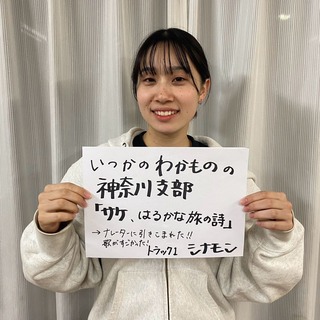 いつかのわかものの
神奈川支部
「サケ、はるかな旅の詩」
→ナレーターに引きこまれた!!
歌がすごかった!
トラック1 シナモン